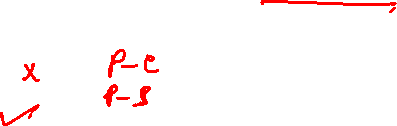 x P-e
P-S